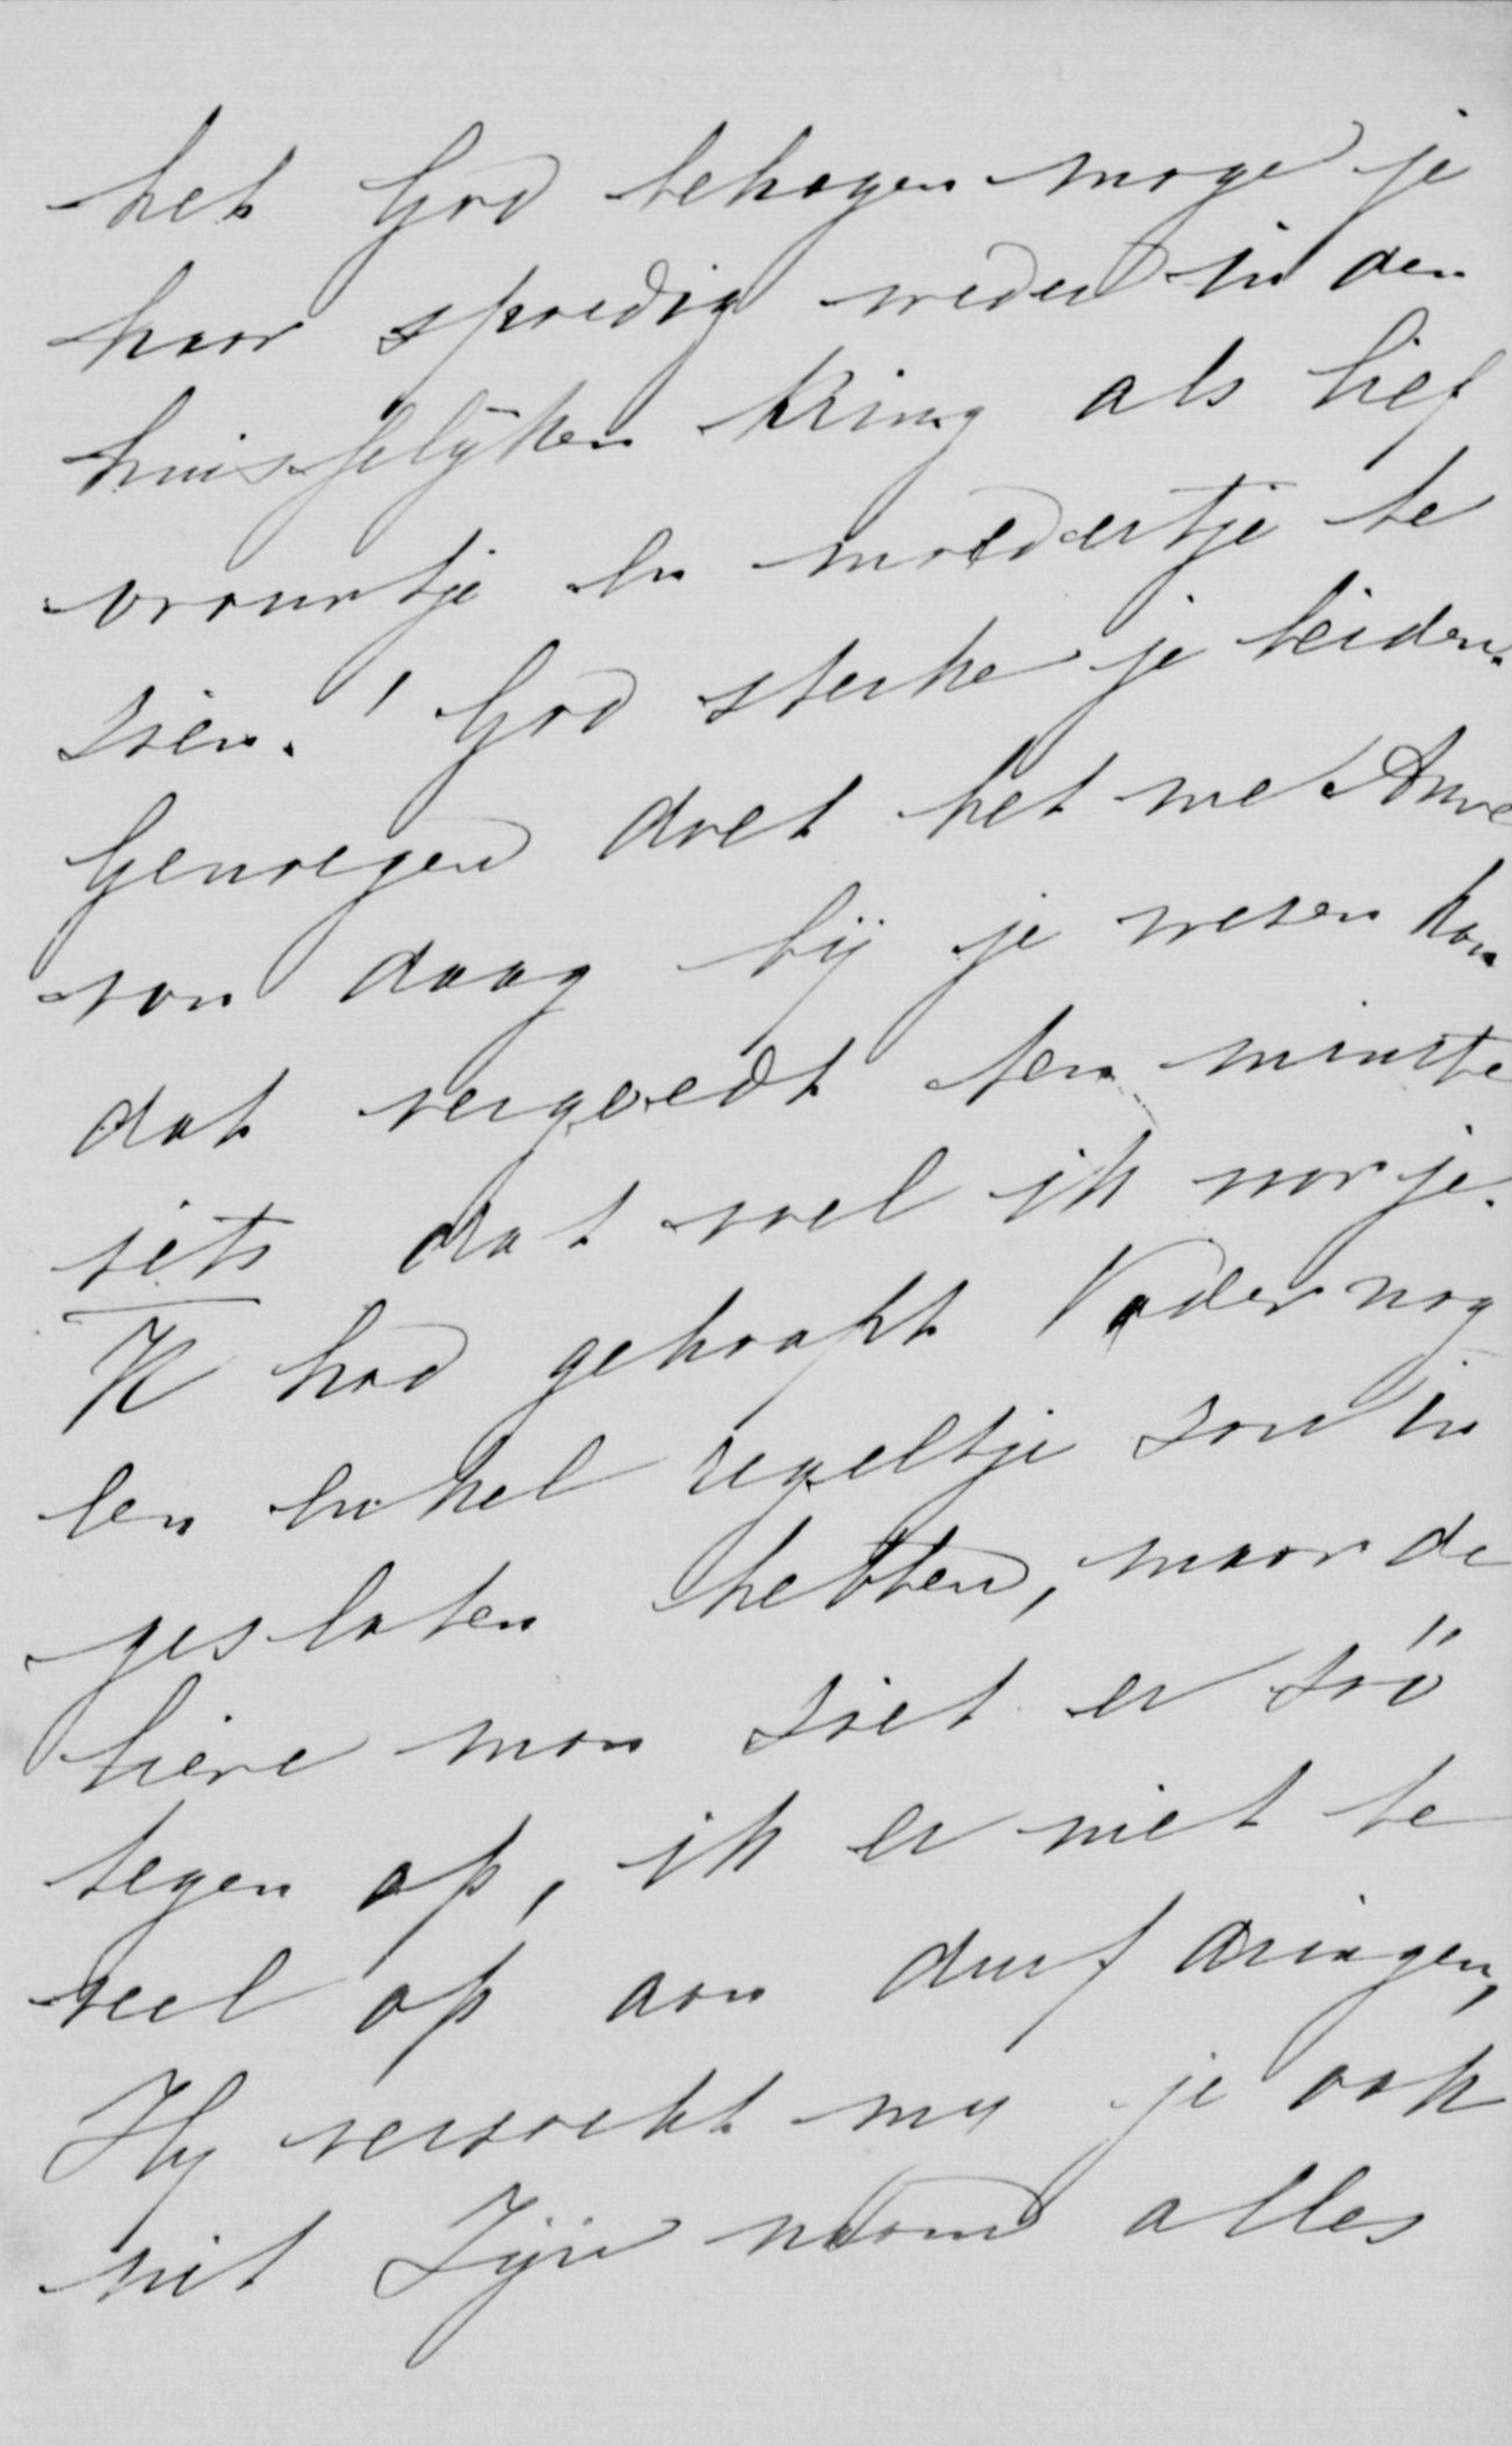 het God behagen moge je
haar spoedig weder in den
huisselijken Kring als lief
vrouwtje en moedertje te
zien! God sterke je beiden.
Genoegen doet het me Anne
van daag bij je wezen kan
dat vergoedt ten minste
iets dat voel ik voor je.
'K had gehoopt Vader nog
een enkel regeltje zou in
gesloten hebben, maar de
lieve man ziet er zóó
tegen op, ik er niet te
veel op aan durf dringen,
Hy verzocht my je ook
uit Zijn naam alles